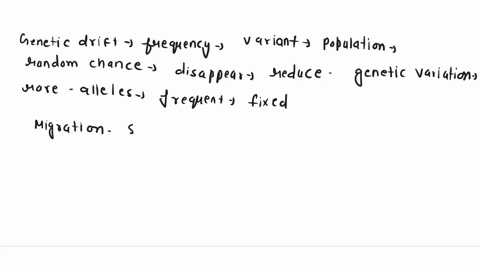 Genetic drift → frequency → variant → population →
random chance → disappear → reduce - genetic variation →
rare - alleles → frequent → fixed
Migration - S